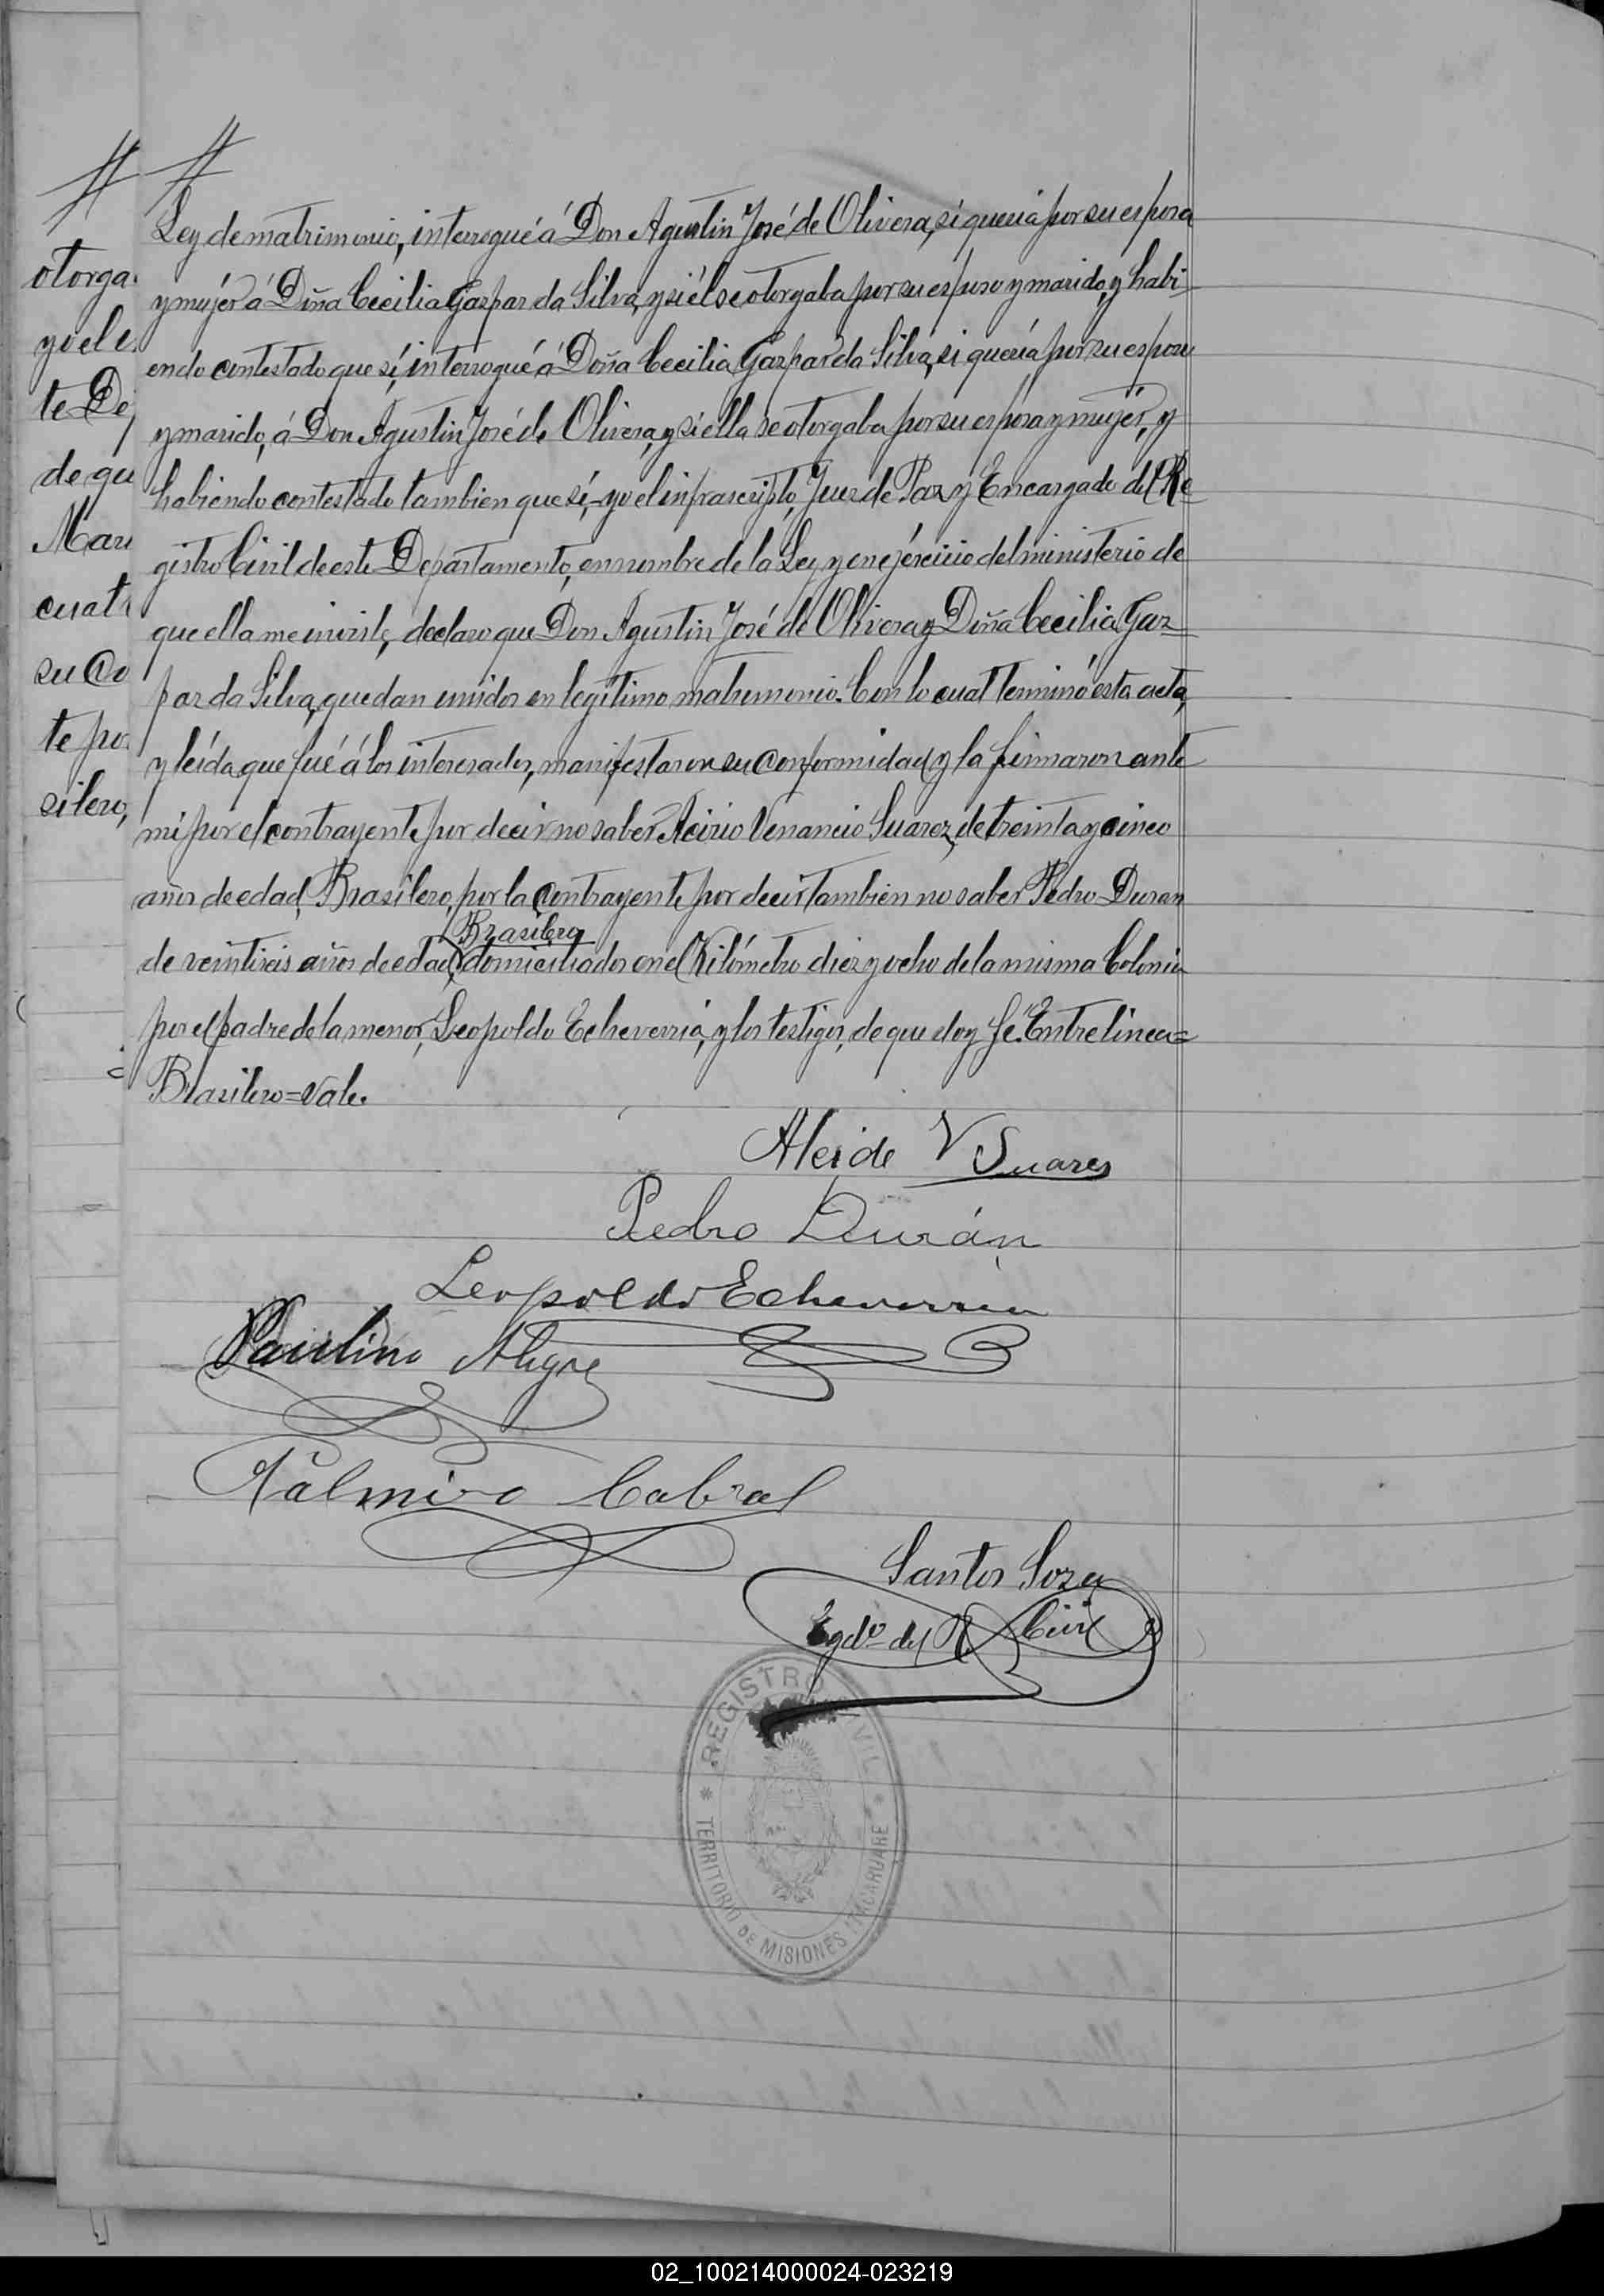 otorga
yo el e
te De
de qu
Mar
cuat
su Co
te po
silero,
Ley de matrimonio, interrogué á Don Agustin José de Olivera, si queria por su esposa
y mujér á Doña Cecilia Gaspar da Silva, y si él se otorgaba por su esposo y marido, y habi-
endo contestado que sí, interrogué á Doña Cecilia Gaspar da Silva, si quería por su esposo
y marido, á Don Agustin José de Olivera, y si ella se otorgaba por su esposa y mujér, y
habiendo contestado tambien que sí, - yo el infrascripto, Juez de Paz y Encargado del Re
gistro Civil de este Departamento, en nombre de la Ley y en ejércicio del ministerio de
que ella me inviste, declaro que Don Agustin José de Olivera y Doña Cecilia Gas=
par da Silva, quedan unidos en legítimo matrimonio. Con lo cual terminó esta acta,
y leída que fué á los interesados, manifestaron su conformidad y la firmaron ante
mí por el contrayente por decir no saber Acirio Venancio Suarez, de treinta y cinco
años de edad, Brasilero, por la contrayente por decir tambien no saber Pedro Duran
Brasilero
de veintiseis años de edad, domiciliados en el Kilómetro diez y ocho de la misma Colonia
por el padre de la menor, Leopoldo Echeverria, y los testigos, de que doy fé. Entre linea=
Brasilero=Vale.
Aleide V Suares
Pedro Durán
Leopoldo Echeverria
Paulino Alegre
Palmiro Cabral
Santos Soza
Egdo del R. Civil
REGISTRO CIVIL
TERRITORIO DE MISIONES ITACARUARE
02_100214000024-023219